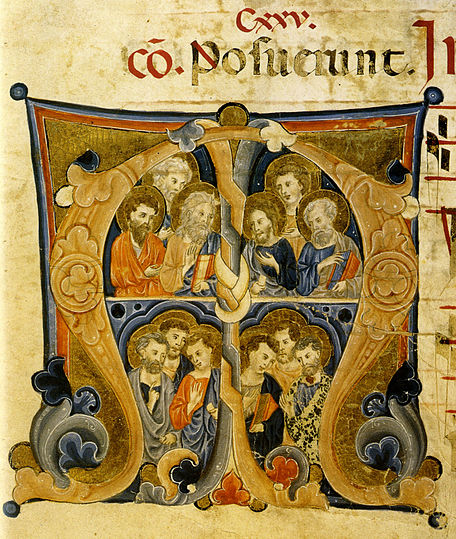 Cxxv.
cō. Posuerunt.